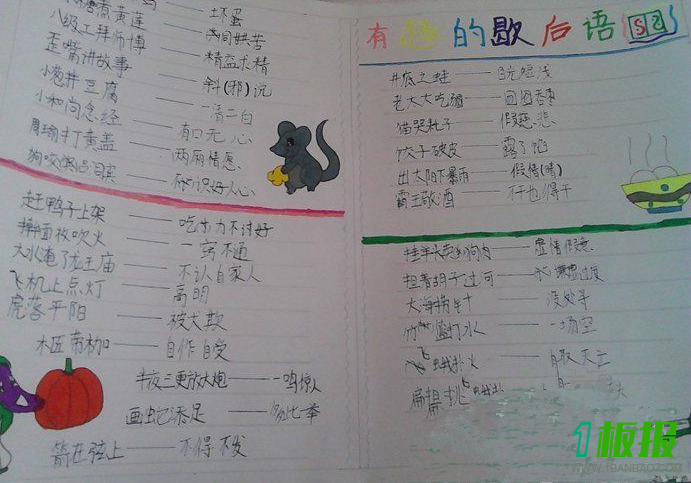 煮黄莲——苦
八级工拜师傅——精益求精
歪嘴讲故事——斜(邪)说
小葱拌豆腐——一清二白
小和尚念经——有口无心
周瑜打黄盖——两厢情愿
狗咬吕洞宾——不识好人心
赶鸭子上架——吃力不讨好
擀面杖吹火——一窍不通
大水淹了龙王庙——不认自家人
飞机上点灯——高明
虎落平阳——被犬欺
木匠带枷——自作自受
半夜三更放大炮——一鸣惊人
画蛇添足——多此一举
箭在弦上——不得不发
有趣的歇后语
井底之蛙——目光短浅
老太太吃——囫囵吞枣
猫哭耗子——假慈悲
饺子破皮——露了馅
出太阳下暴雨——假情(晴)
霸王敬酒——不干也得干
挂羊头卖狗肉——虚情假意
担着胡子过河——过度
大海捞针——没处寻
竹篮打水——一场空
飞蛾扑火——自取灭亡
扁担挑
1板报
WWW.1BANBAO.COM